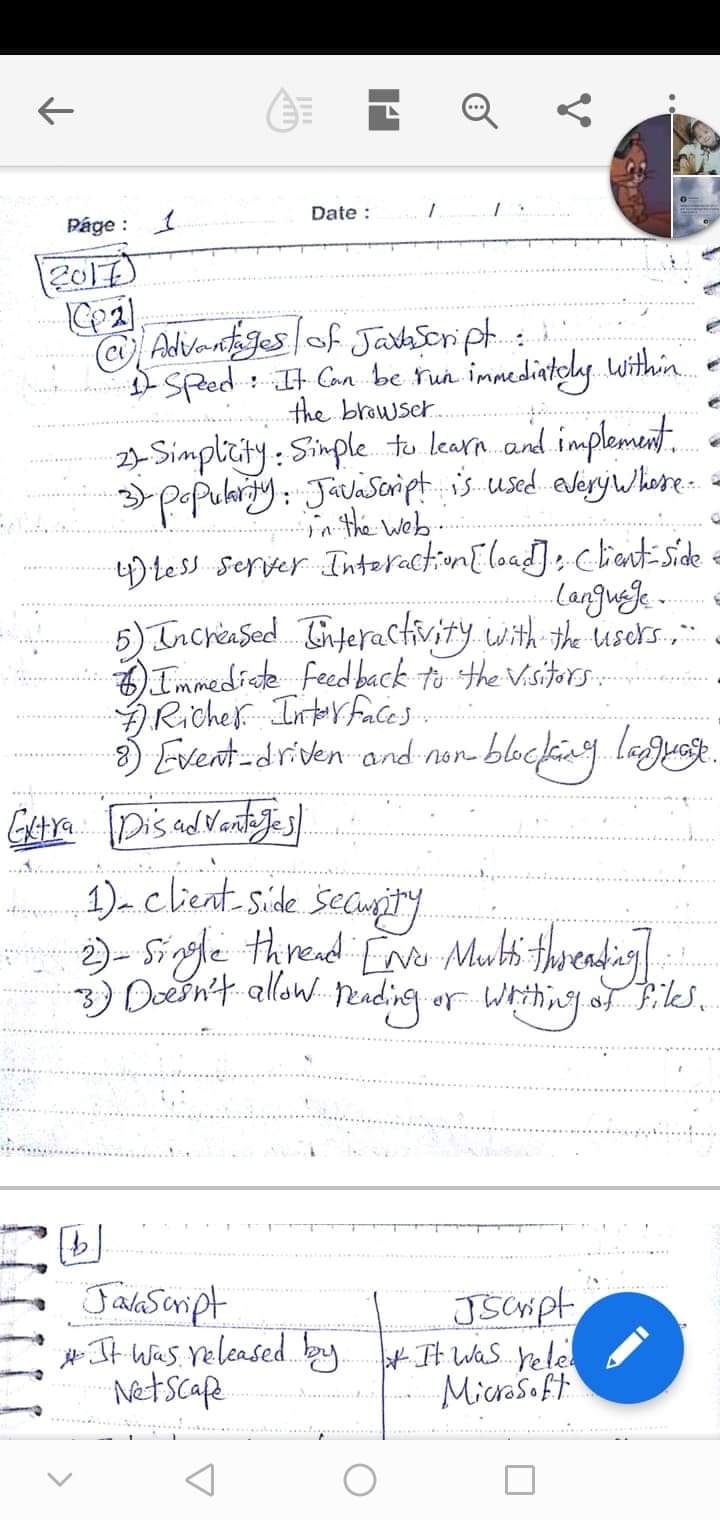 Page : 1
Date : / /
2017
Cp2
(a) Advantages of JavaScript :
1)- Speed : It Can be run immediately within
the browser
2)- Simplicity : Simple to learn and implement.
3)- Popularity : JavaScript is used everywhere
in the web.
4) Less server Interaction [load] : Client-side
Language.
5) Increased Interactivity with the users.
6) Immediate feedback to the visitors.
7) Richer Interfaces.
8) Event-driven and non-blocking language.
Extra Disadvantages
1)- Client-side security
2)- Single thread [No Multi threading]
3) Doesn't allow reading or writing of files.
b
JavaScript JScript
* It was released by * It was rele
NetScape Microsoft